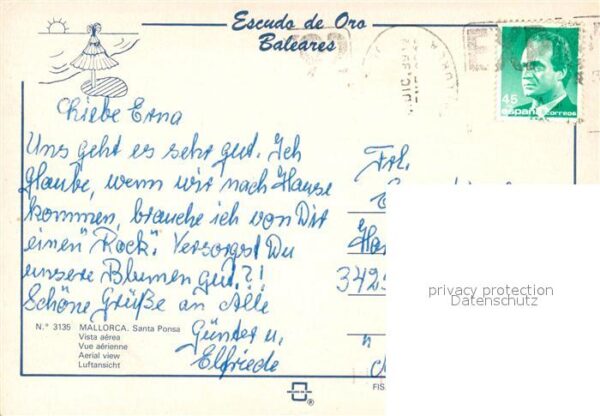 Escudo de Oro
Baleares
45
españa correos
Liebe Erna
Uns geht es sehr gut. Ich
glaube, wenn wir nach Hause
kommen, brauche ich von Dir
einen "Rock". Versorgst Du
unsere Blumen gut?!
Schöne Grüße an Alle
Günter u.
Elfriede
Frl.
342
privacy protection
Datenschutz
N.º 3135 MALLORCA. Santa Ponsa
Vista aérea
Vue aérienne
Aerial view
Luftansicht
FIS